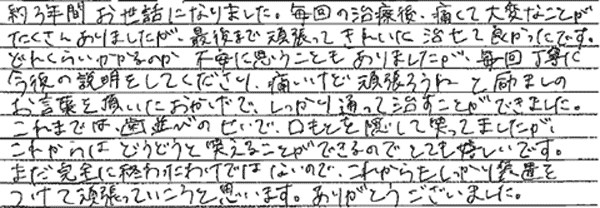 約3年間お世話になりました。毎回の治療後、痛くて大変なことが
たくさんありましたが、最後まで頑張ってきれいに治せて良かったです。
どれくらいかかるのか不安に思うこともありましたが、毎回丁寧に
今後の説明をしてくださり、痛いけど頑張ろうねと励ましの
お言葉を頂いたおかげで、しっかり通って治すことができました。
これまでは、歯並びのせいで、口もとを隠して笑ってましたが、
これからはどうどうと笑えることができるのでとても嬉しいです。
まだ完全に終わったわけではないので、これからもしっかり装置を
つけて頑張っていこうと思います。ありがとうございました。